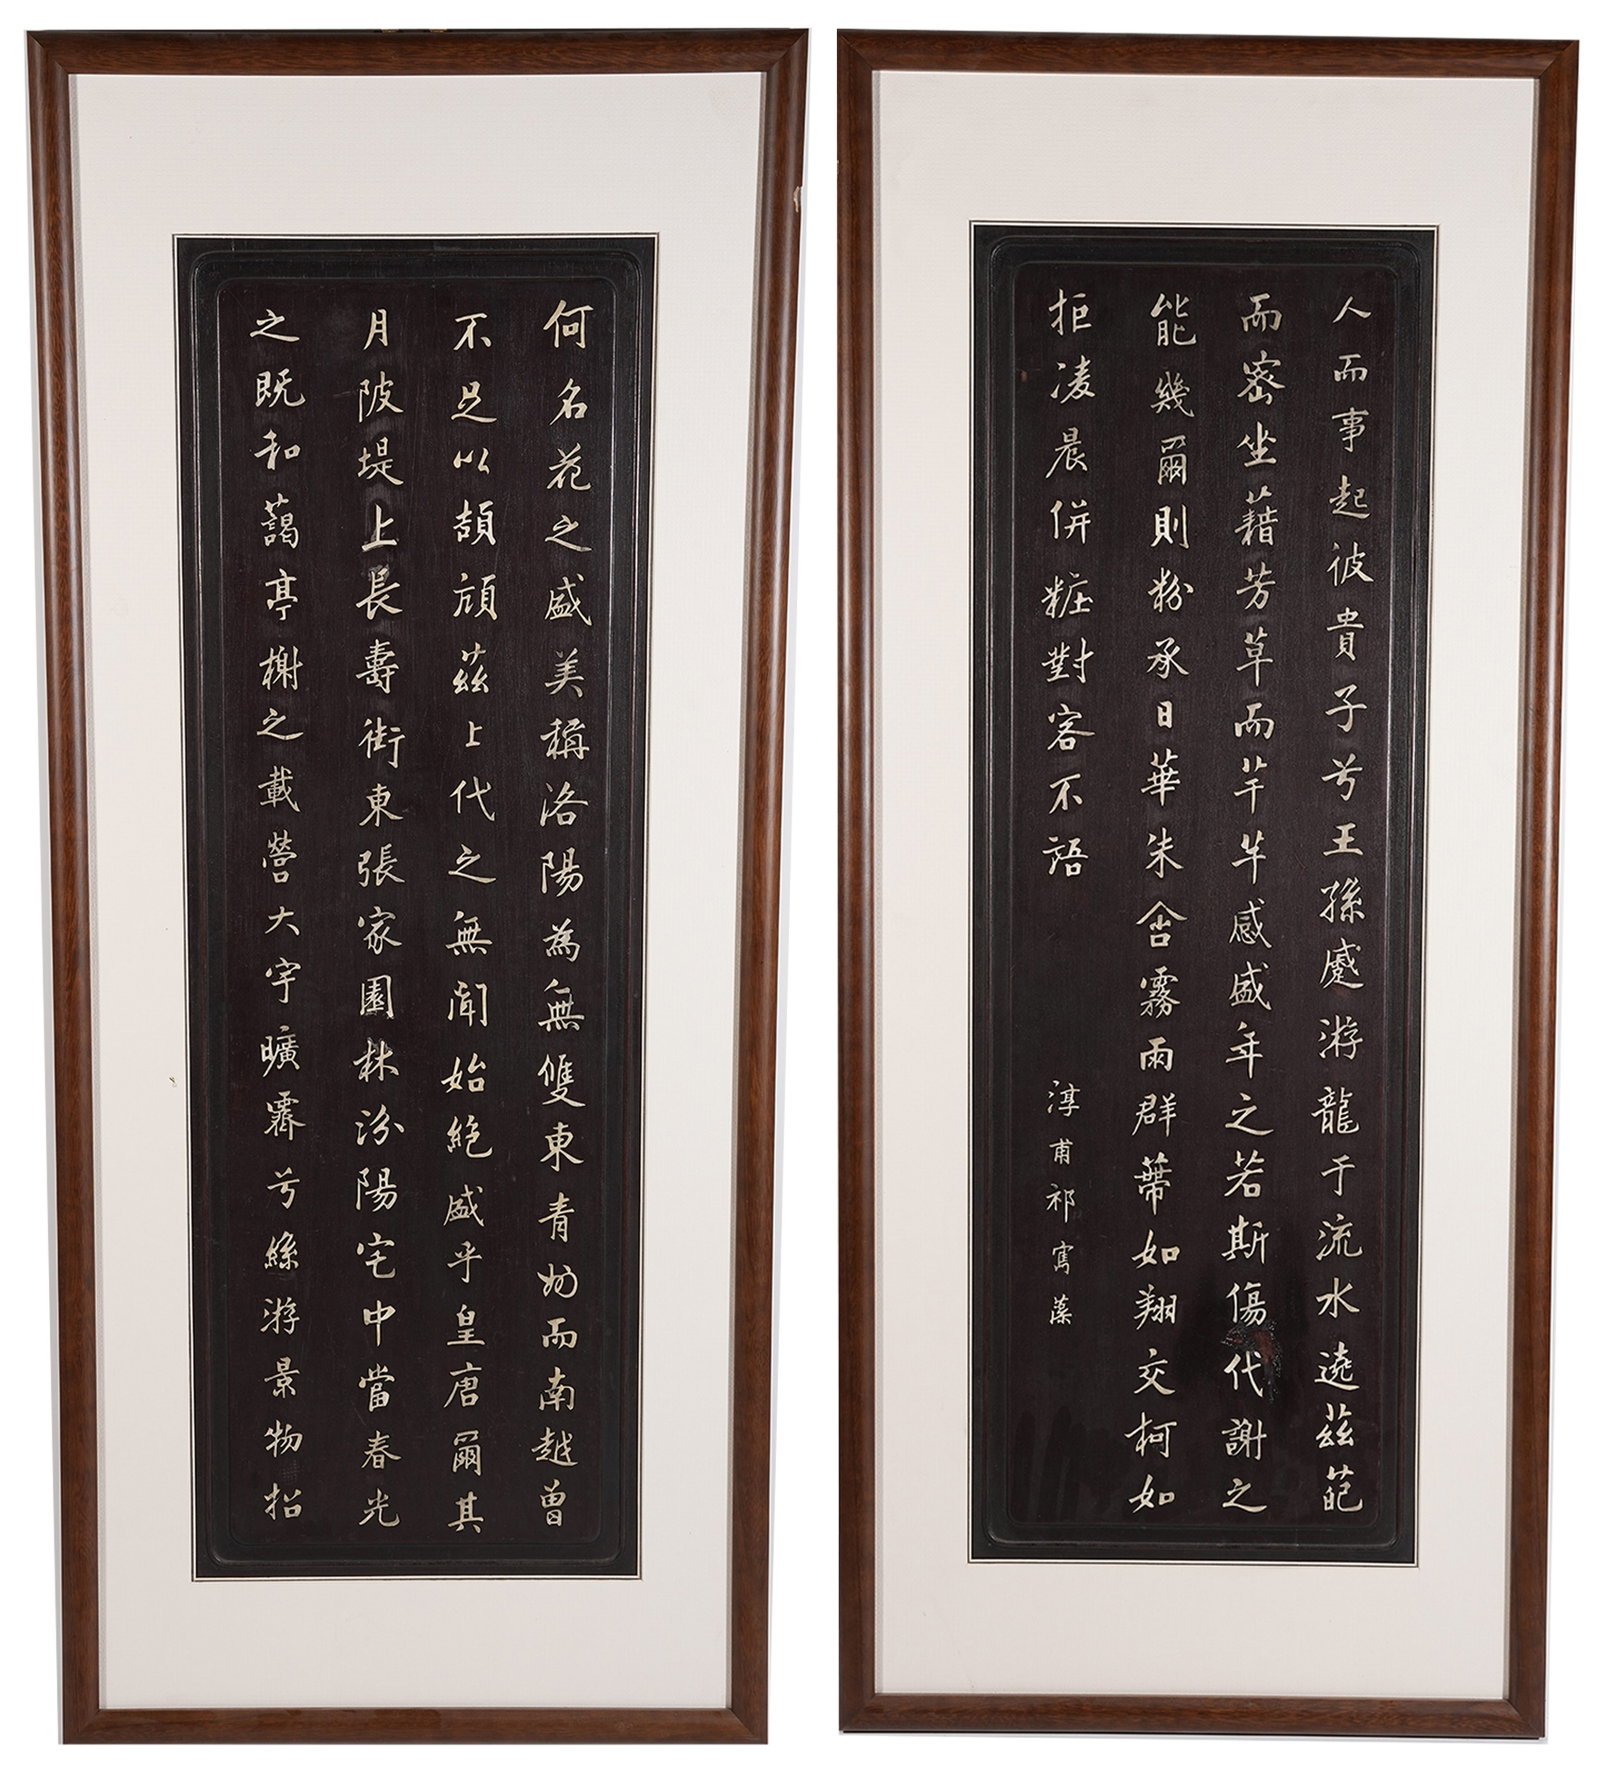 何名花之盛美稱洛陽為無雙東青幼而南越曾
不足以頡頏茲上代之無聞始絕盛乎皇唐爾其
月陂堤上長壽街東張家園林汾陽宅中當春光
之既和藹亭榭之載營大宇曠霽兮絲游景物招
人而事起彼貴子兮王孫蹙游龍于流水遶茲葩
而密坐藉芳草而芊芊感盛年之若斯傷代謝之
能幾爾則粉承日華朱含霧雨群蔕如翔交柯如
拒凌晨併粧對客不語
淳甫祁寯藻